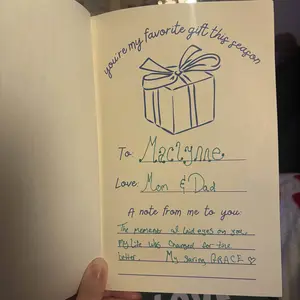 you're my favorite gift this season
To: Maclynne
Love: Mom & Dad
A note from me to you:
The moment I laid eyes on you
my life was changed for the
better. My saving GRACE ♡